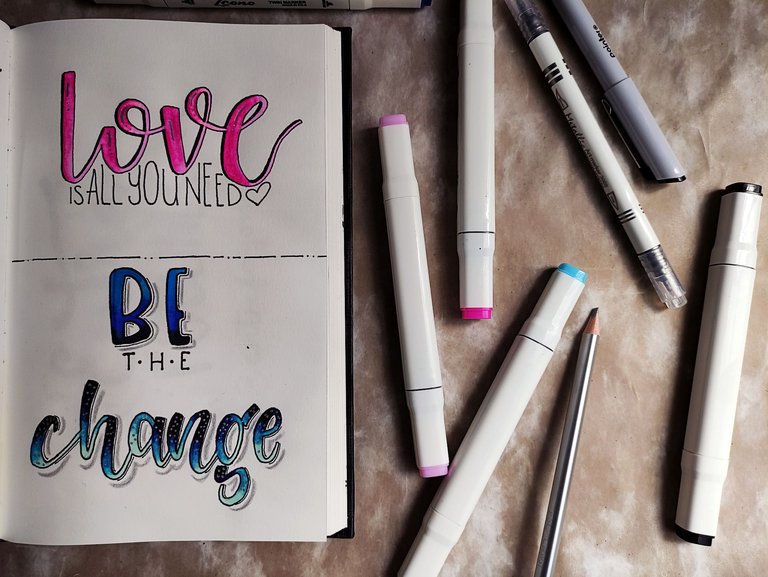 love
IS ALL YOU NEED
BE
T·H·E
change
pointers